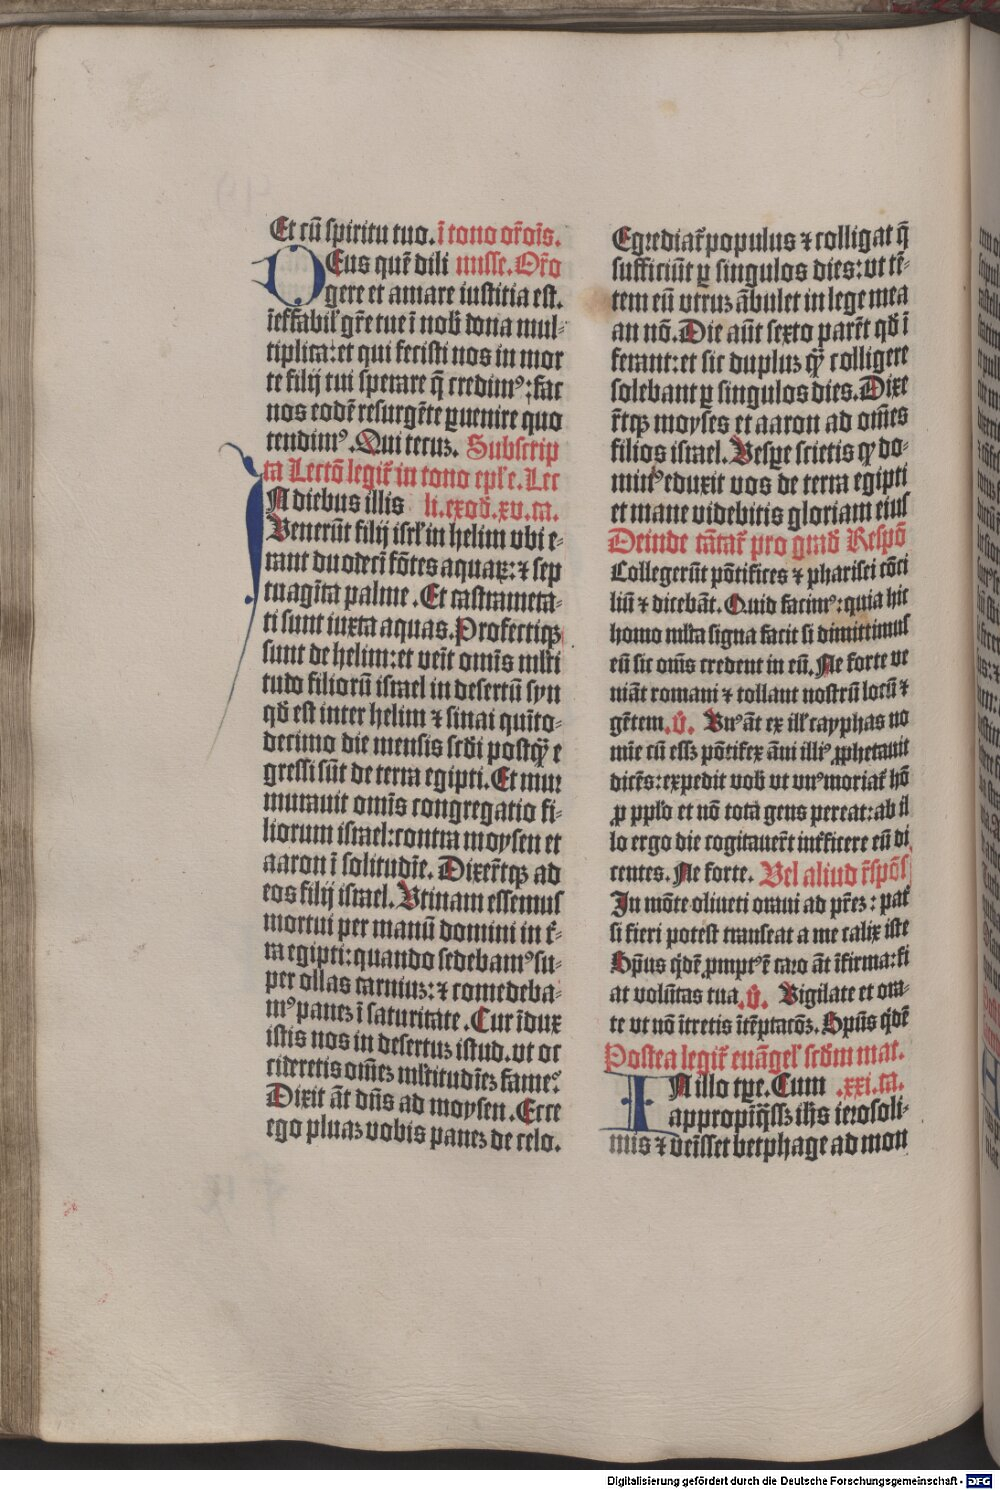 Et cū spiritu tuo. ī tono or̄oīs.
DEus quē dili misse. Or̄o
gere et amare iustitia est.
īeffabil' gr̄e tue ī nob̄ dona mul-
tiplica: et qui fecisti nos in mor
te filij tui sperare q̄ credimꝰ: fac
nos eodē resurgēte ꝑuenire quo
tendimꝰ. Qui tecuꝫ. Subscrip
ta Lectō legit̄ in tono epl'e. Lec
IN diebus illis li. exod̄. xv. ca.
Venerūt filij isrl' in helim vbi e-
rant duodecī fōtes aquaꝝ: ⁊ sep
tuagīta palme. Et castrameta-
ti sunt iuxta aquas. Profectiqꝫ
sunt de helim: et veīt omīs ml'ti
tudo filiorū israel in desertū syn
qd̄ est inter helim ⁊ sinai quīto-
decimo die mensis scd̄i postqꝫ̄ e
gressi sūt de terra egipti. Et mur
murauit omīs congregatio fi-
liorum israel: contra moysen et
aaron ī solitudīe. Dixer̄tqꝫ ad
eos filij israel. Vtinam essemus
mortui per manū domini in t̄r-
ra egipti: quando sedebamꝰ su-
per ollas carniuꝫ: ⁊ comedeba-
mꝰ paneꝫ ī saturitate. Cur īdux
istis nos in desertuꝫ istud. vt oc
cideretis omēꝫ ml'titudīeꝫ fame?
Dixit āt dn̄s ad moysen. Ecce
ego pluaꝫ vobis paneꝫ de celo.
Egrediat̄ populus ⁊ colligat q̄
sufficiūt ꝑ singulos dies: vt tē-
tem eū vtruꝫ ābulet in lege mea
an nō. Die aūt sexto parēt qd̄ ī
ferant: et sit dupluꝫ qꝫ̄ colligere
solebant ꝑ singulos dies. Dixe
r̄tqꝫ moyses et aaron ad om̄es
filios israel. Vesꝑe scietis qꝙ do-
minꝰ eduxit vos de terra egipti
et mane videbitis gloriam eius
Deinde cātat̄ pro grad̄ Respō
Collegerūt pōtifices ⁊ pharisei cōci
liū ⁊ dicebāt. Quid facimꝰ: quia hic
homo ml'ta signa facit si dimittimus
eū sic om̄s credent in eū. Ne forte ve
niāt romani ⁊ tollant nostrū locū ⁊
gētem. v̄. Vnꝰ āt ex ill' cayphas no
mīe cū essꝫ pōtifex āni illiꝰ ꝓphetauit
dicēs: expedit vob̄ vt vnꝰ moriat̄ hō
ꝓ pplo et nō tota gens pereat: ab il
lo ergo die cogitauer̄t int̄ficere eū di
centes. Ne forte. Vel aliud r̄spōs
In mōte oliueti oraui ad pr̄eꝫ: pat̄
si fieri potest transeat a me calix iste
Spūs qd̄ē ꝓmptꝰ ē caro āt īfirma: fi
at volūtas tua. v̄. Vigilate et ora-
te vt nō ītretis ītēptacōꝫ. Spūs qd̄ē
Postea legit̄ euāgel' scd̄m mat.
IN illo tp̄e. Cum .xxi. ca.
appropīq̄ssꝫ ih̄s ierosoli-
mis ⁊ veīsset betphage ad mon
Digitalisierung gefördert durch die Deutsche Forschungsgemeinschaft - DFG